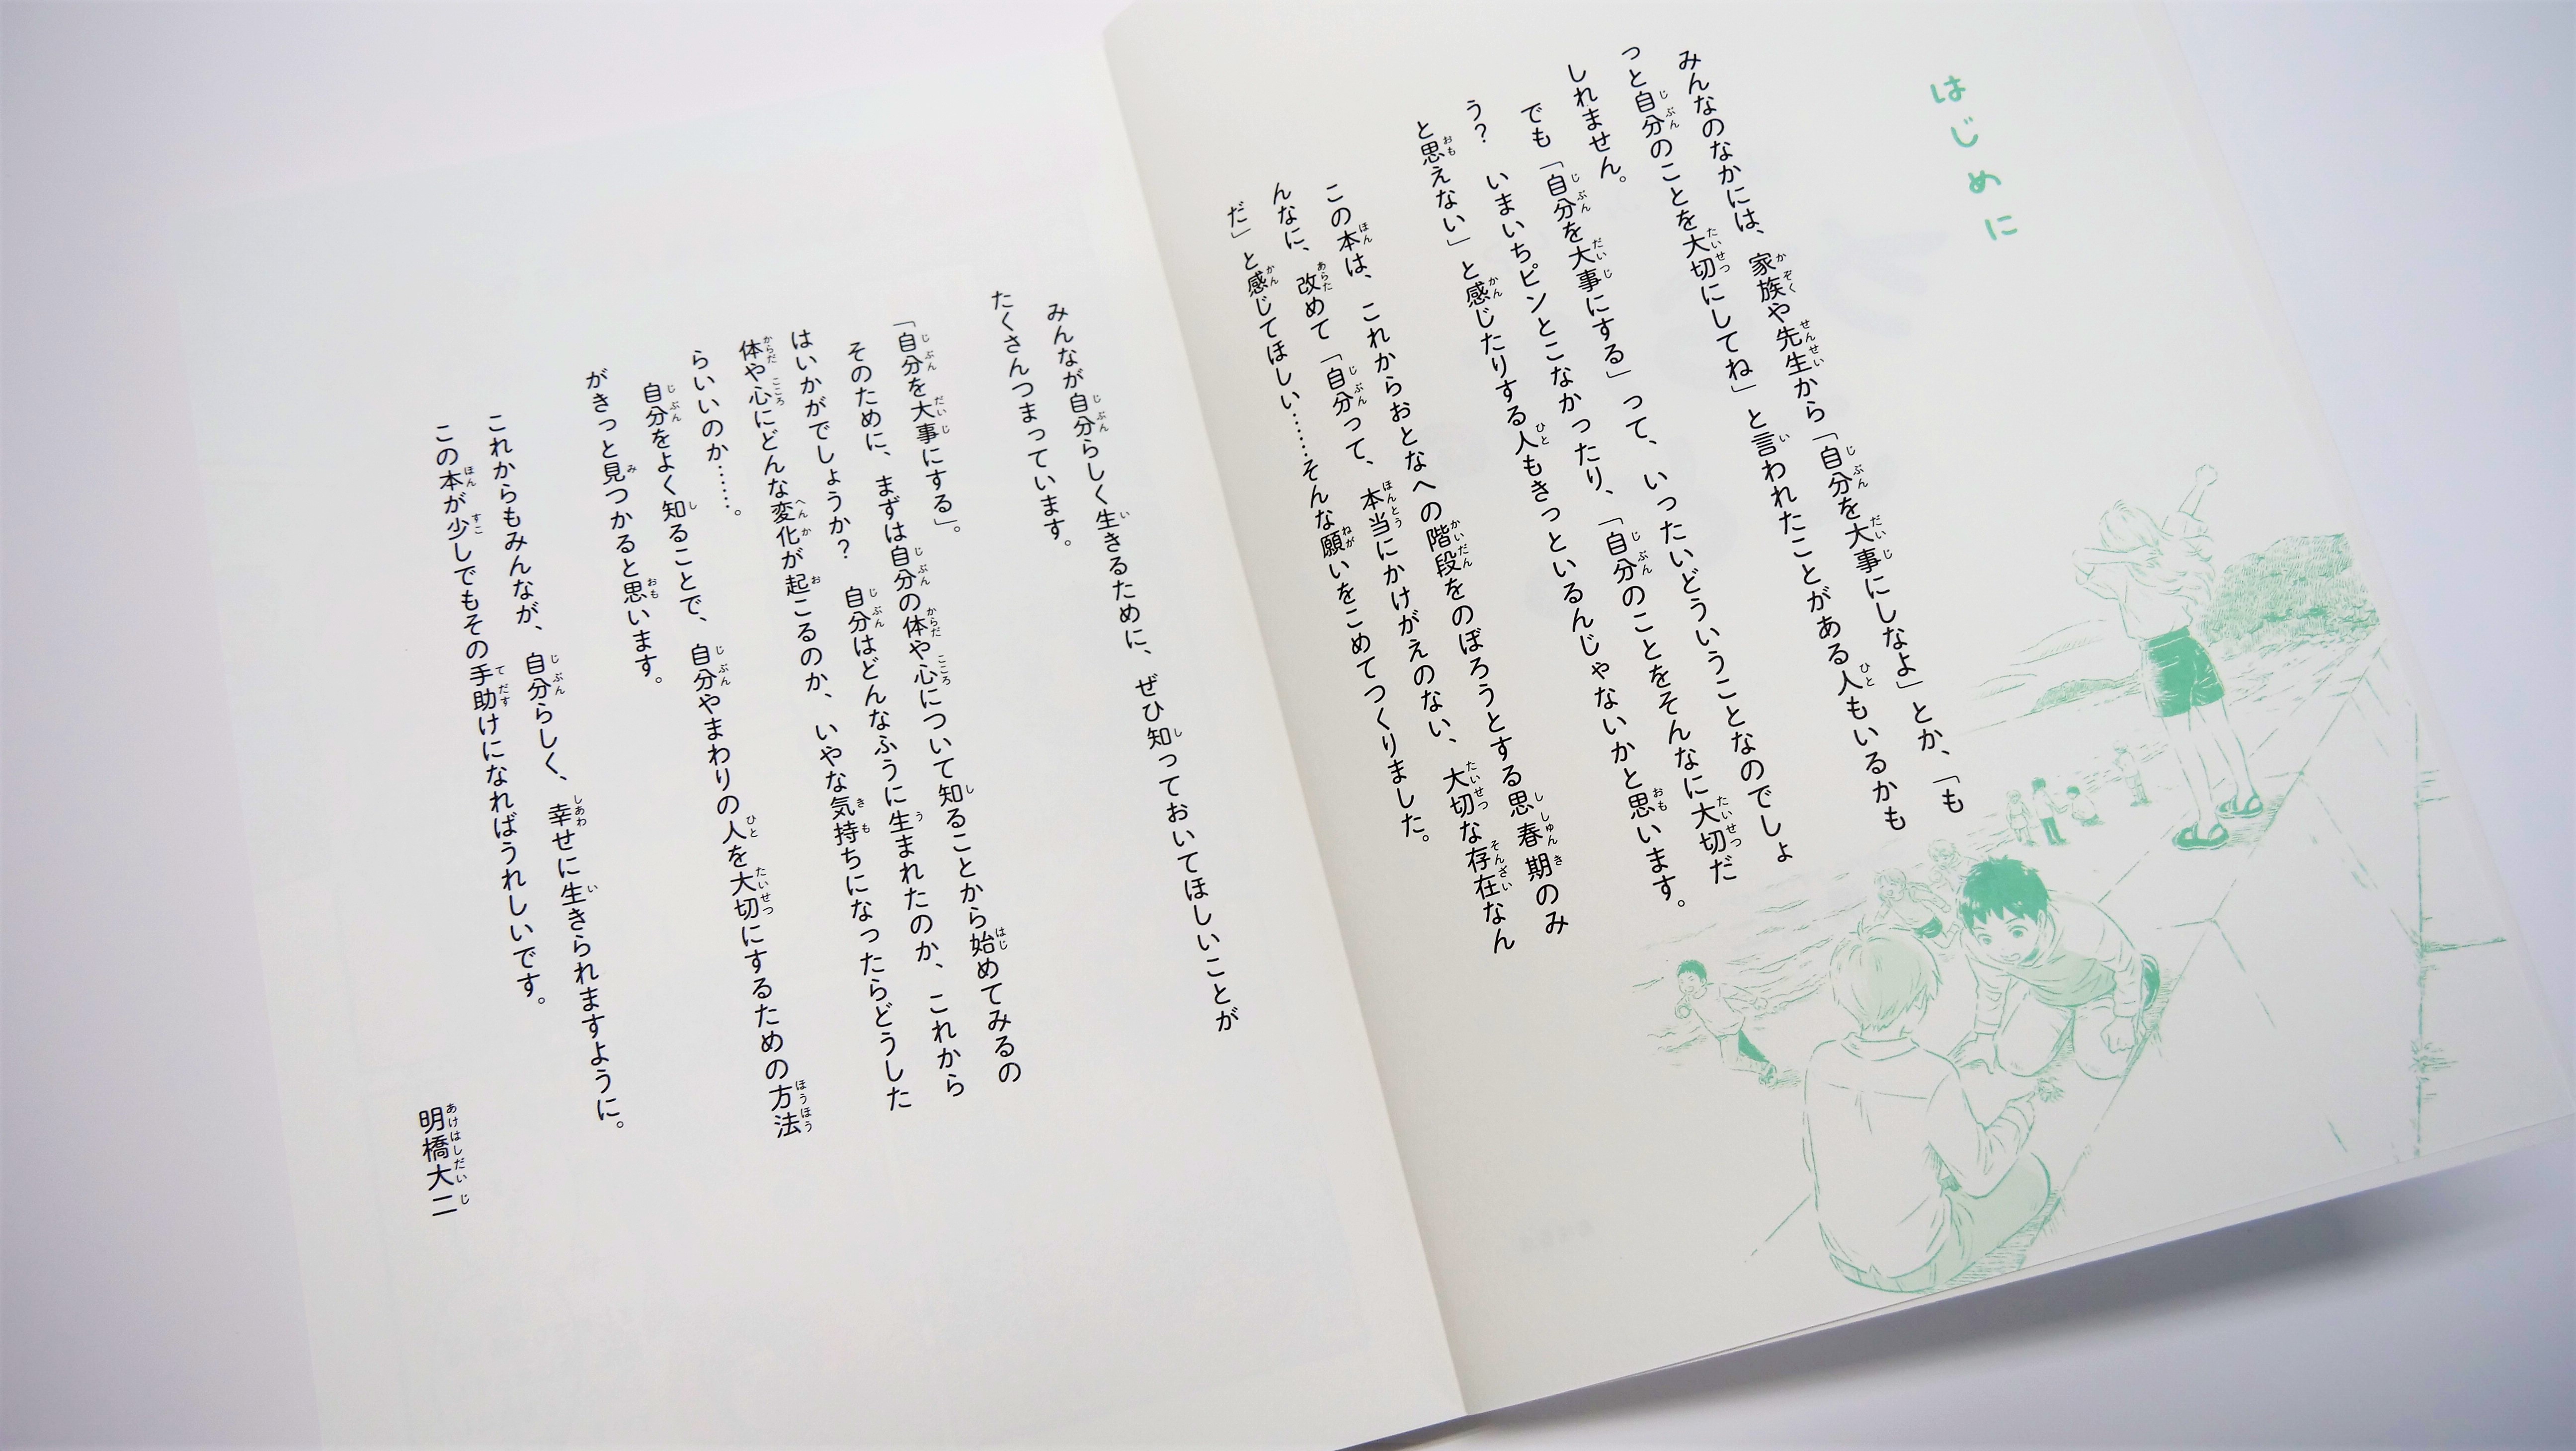 はじめに
みんなのなかには、家族や先生から「自分を大事にしなよ」とか、「も
っと自分のことを大切にしてね」と言われたことがある人もいるかも
しれません。
でも「自分を大事にする」って、いったいどういうことなのでしょ
う？　いまいちピンとこなかったり、「自分のことをそんなに大切だ
と思えない」と感じたりする人もきっといるんじゃないかと思います。
この本は、これからおとなへの階段をのぼろうとする思春期のみ
んなに、改めて「自分って、本当にかけがえのない、大切な存在なん
だ」と感じてほしい……そんな願いをこめてつくりました。
みんなが自分らしく生きるために、ぜひ知っておいてほしいことが
たくさんつまっています。
「自分を大事にする」。
そのために、まずは自分の体や心について知ることから始めてみるの
はいかがでしょうか？　自分はどんなふうに生まれたのか、これから
体や心にどんな変化が起こるのか、いやな気持ちになったらどうした
らいいのか……。
自分をよく知ることで、自分やまわりの人を大切にするための方法
がきっと見つかると思います。
これからもみんなが、自分らしく、幸せに生きられますように。
この本が少しでもその手助けになればうれしいです。
明橋大二